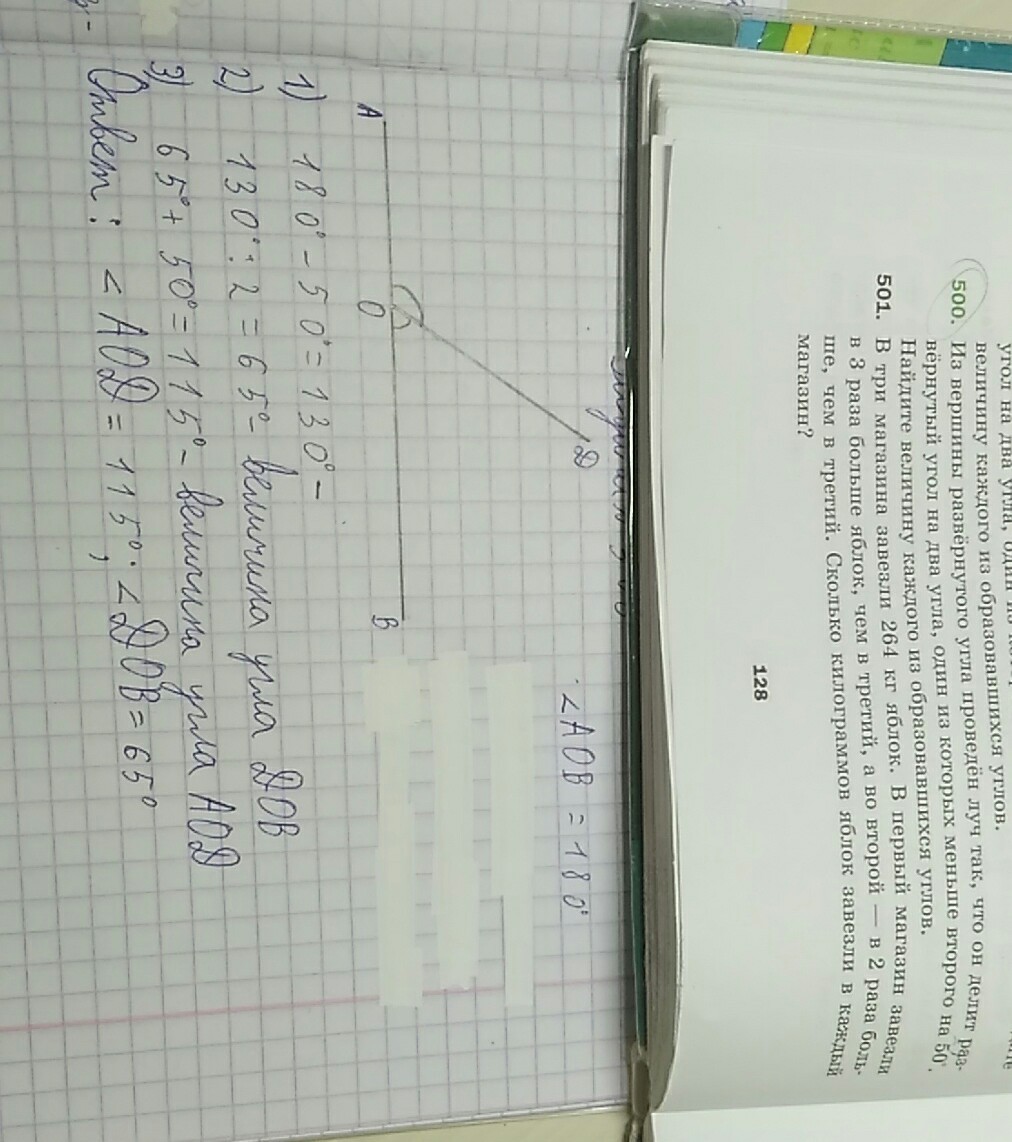 угол на два угла, один из
величину каждого из образовавшихся углов.
500. Из вершины развёрнутого угла проведён луч так, что он делит раз-
вёрнутый угол на два угла, один из которых меньше второго на 50°.
Найдите величину каждого из образовавшихся углов.
501. В три магазина завезли 264 кг яблок. В первый магазин завезли
в 3 раза больше яблок, чем в третий, а во второй — в 2 раза боль-
ше, чем в третий. Сколько килограммов яблок завезли в каждый
магазин?
128
<АОВ = 180°
Д
А О В
1) 180° - 50° = 130° -
2) 130° : 2 = 65° - величина угла ДОВ
3) 65° + 50° = 115° - величина угла АОД
Ответ: < АОД = 115°, < ДОВ = 65°